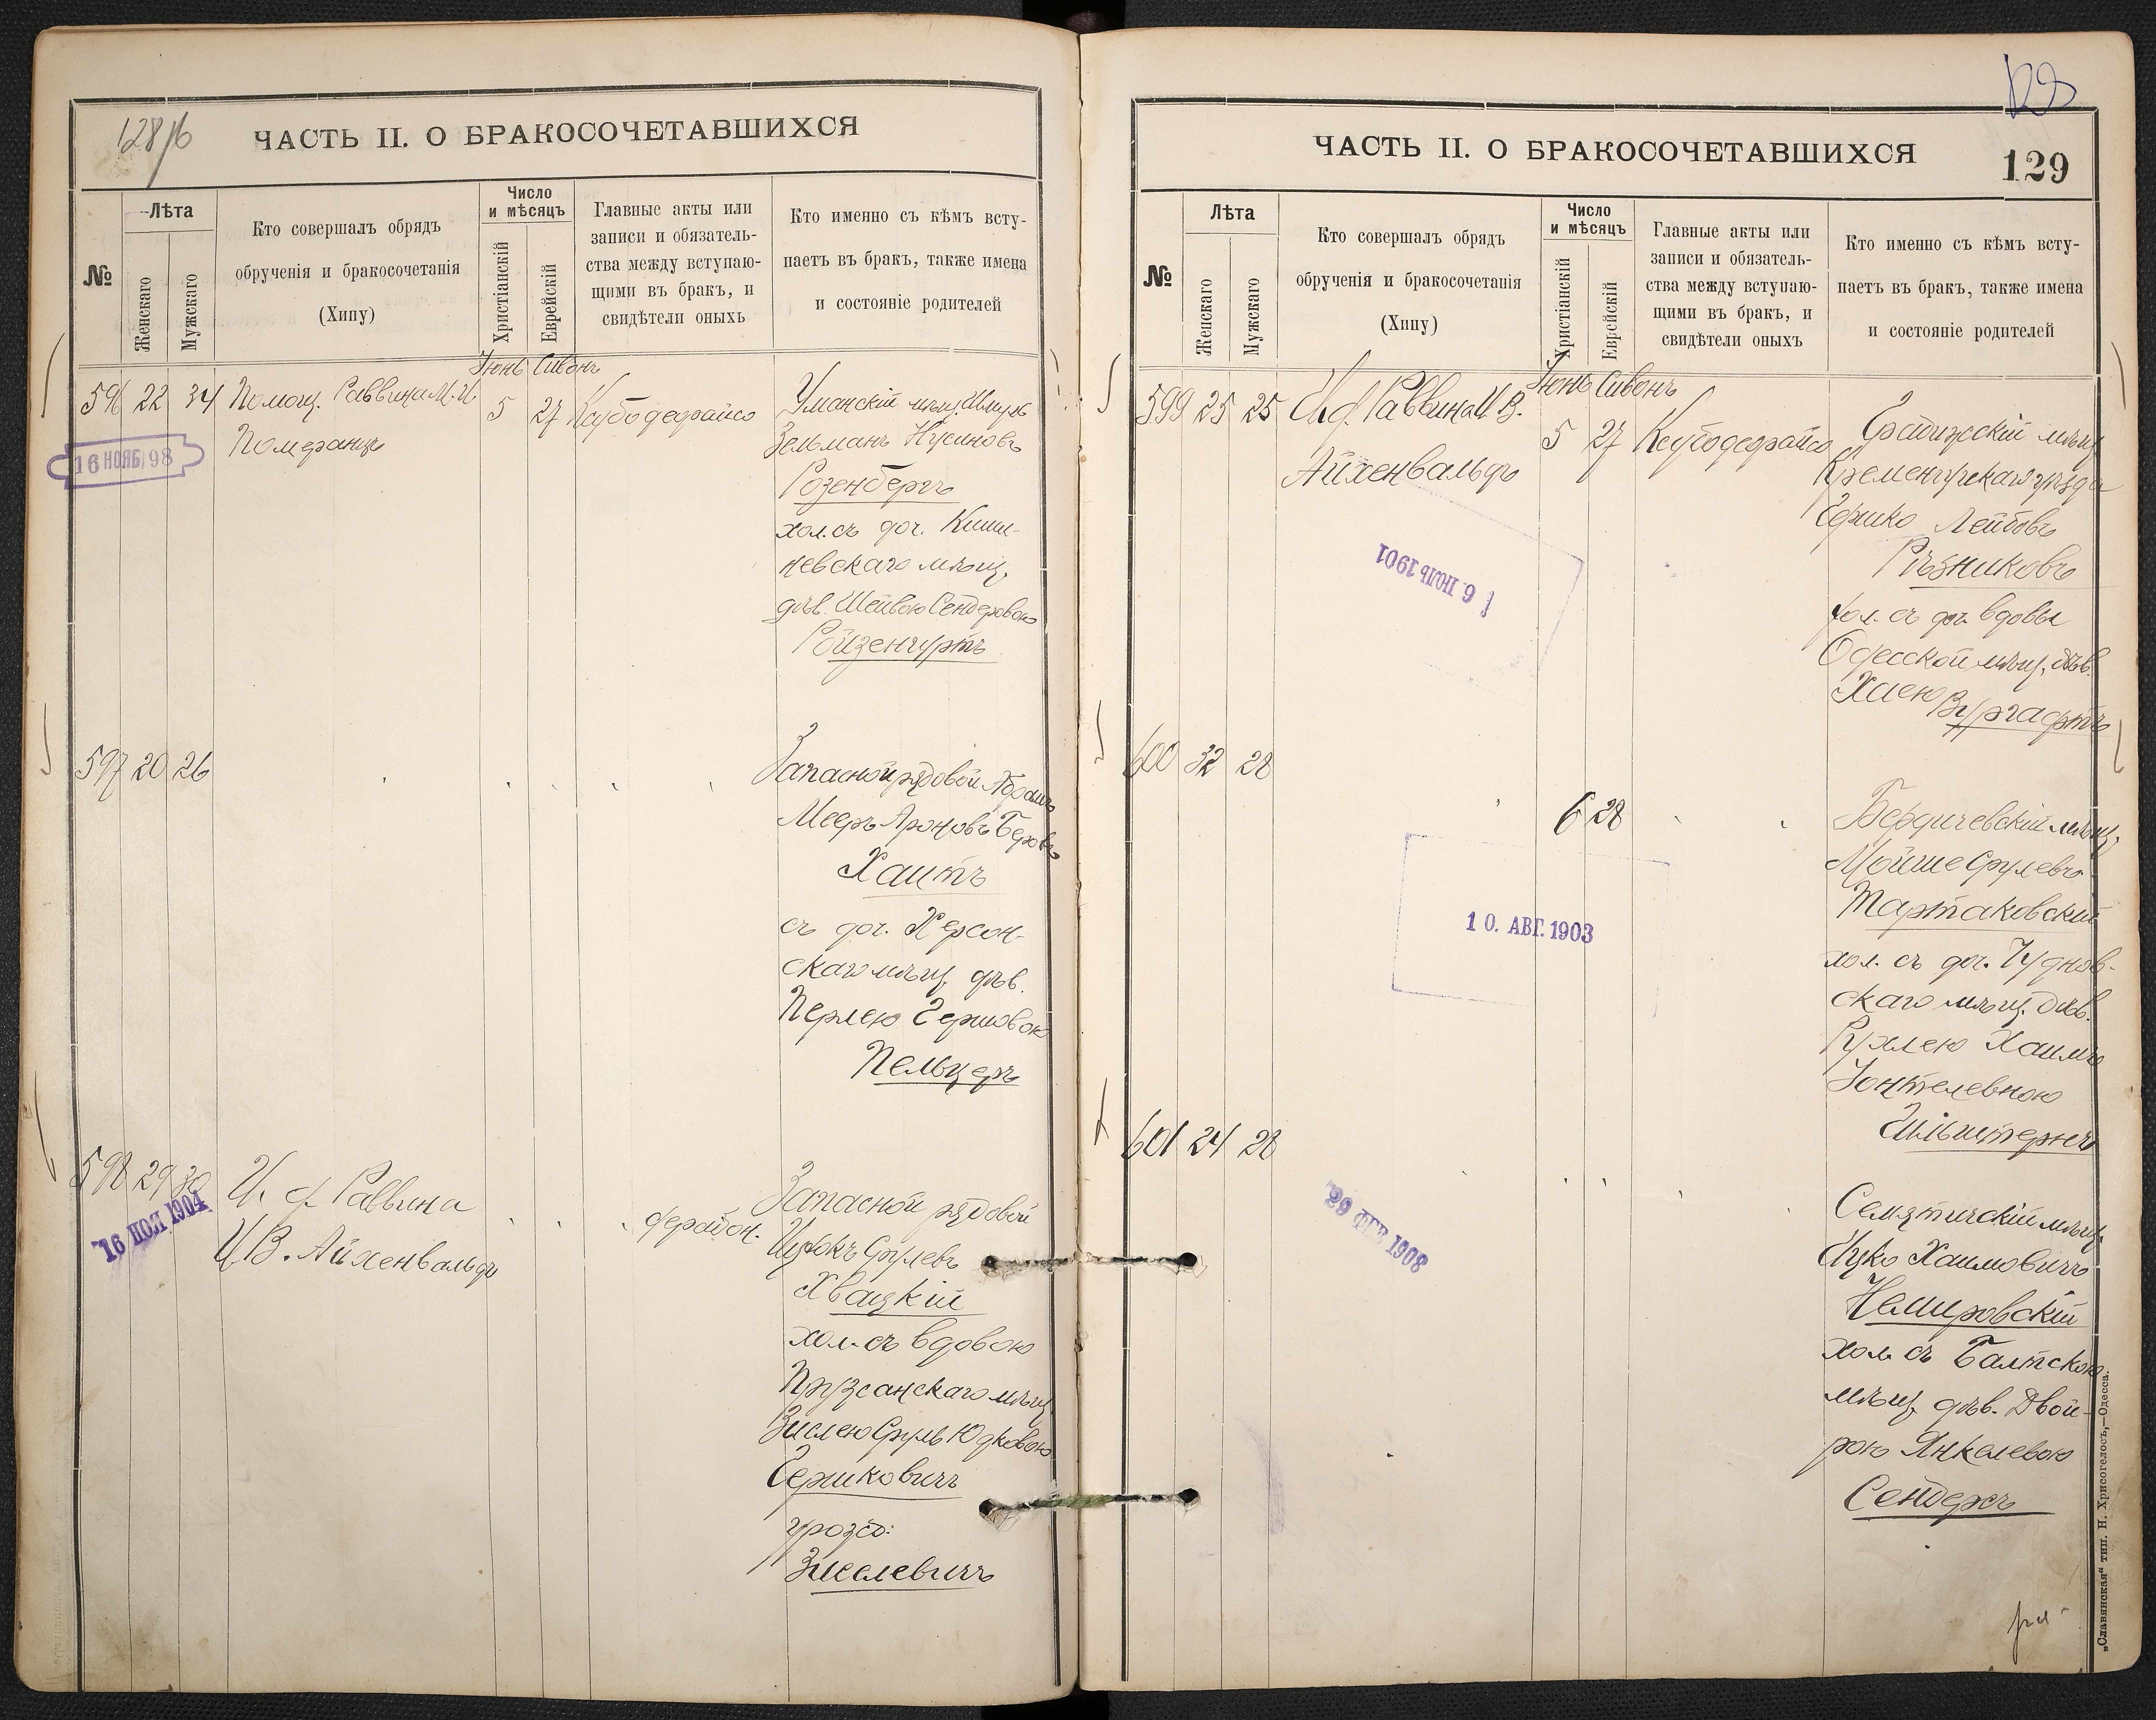 128/б
ЧАСТЬ II. О БРАКОСОЧЕТАВШИХСЯ
№
Лѣта
Женскаго
Мужскаго
Кто совершалъ обрядъ
обрученія и бракосочетанія
(Хипу)
Число
и мѣсяцъ
Христіанскій
Еврейскій
Главные акты или
записи и обязатель-
ства между вступаю-
щими въ бракъ, и
свидѣтели оныхъ
Кто именно съ кѣмъ всту-
паетъ въ бракъ, также имена
и состояніе родителей
Іюнь Сивонъ
596 22 34 Помощ. Раввина М. И.
Померанцъ
5 27 Ксубодефрайсо
16 НОЯБ. 98
Уманскій мѣщ. Шмуль
Зельманъ Нусиновъ
Розенбергъ
хол. съ доч. Киши-
невскаго мѣщ.
дѣв. Шейвою Сендеровою
Ройзенгуртъ
597 20 26
Запасной рядовой Абрамъ
Мееръ Ароновъ Беровъ
Хаитъ
съ доч. Херсон-
скаго мѣщ. дѣв.
Перлею Гершовою
Пельцеръ
598 29 30 И. д. Раввина
И. В. Айхенвальдъ
16 НОЯ 1904
Запасной рядовой
Ицкокъ Срулевъ
Хвацкій
хол. съ вдовою
Пружанскаго мѣщ.
Зислею Сруль Юдковою
Гершковичъ
урожд:
Зиселевичъ
129
ЧАСТЬ II. О БРАКОСОЧЕТАВШИХСЯ
129
№
Лѣта
Женскаго
Мужскаго
Кто совершалъ обрядъ
обрученія и бракосочетанія
(Хипу)
Число
и мѣсяцъ
Христіанскій
Еврейскій
Главные акты или
записи и обязатель-
ства между вступаю-
щими въ бракъ, и
свидѣтели оныхъ
Кто именно съ кѣмъ всту-
паетъ въ бракъ, также имена
и состояніе родителей
Іюнь Сивонъ
599 25 25 И. д. Раввина И. В.
Айхенвальдъ
5 27 Ксубодефрайсо
6. ІЮЛЬ 1901
мѣщ
Кременчугскаго уѣзда
Гершко Лейбовъ
Рѣзниковъ
хол. съ доч. вдовы
Одесской мѣщ. дѣв.
Хаею Вургафтъ
600 32 28
6 28
10. АВГ. 1903
Бердичевскій мѣщ.
Мойше Срулевъ
Тартаковскій
хол. съ доч. Чуднов-
скаго мѣщ. дѣв.
Рухлею Хаимъ
Іонтелевною
601 24 28
29 ФЕВ 1908
Семятичскій мѣщ.
Ицко Хаимовичъ
Немировскій
хол. съ Балтскою
мѣщ. дѣв. Двой-
рою Янкелевою
Сендеръ
„Славянская“ тип. Н. Хрисогелосъ,—Одесса.